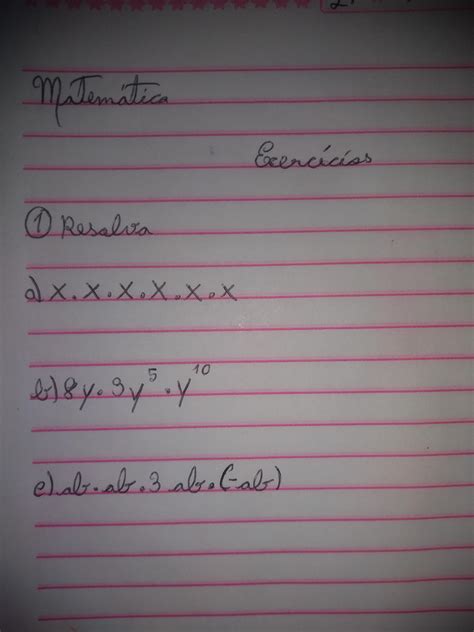 Matemática
Exercícios
① Resolva
a) x . x . x . x . x . x
b) 8y . 3y⁵ . y¹⁰
c) ab . ab . 3 ab . (-ab)